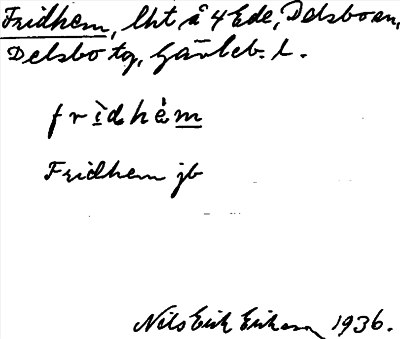 Fridhem, lht å 4 Ede, Delsbo sn,
Delsbo tg, Gävleb. l.
fri̱dhem̱
Fridhem jb
Nils Erik Erikson 1936.